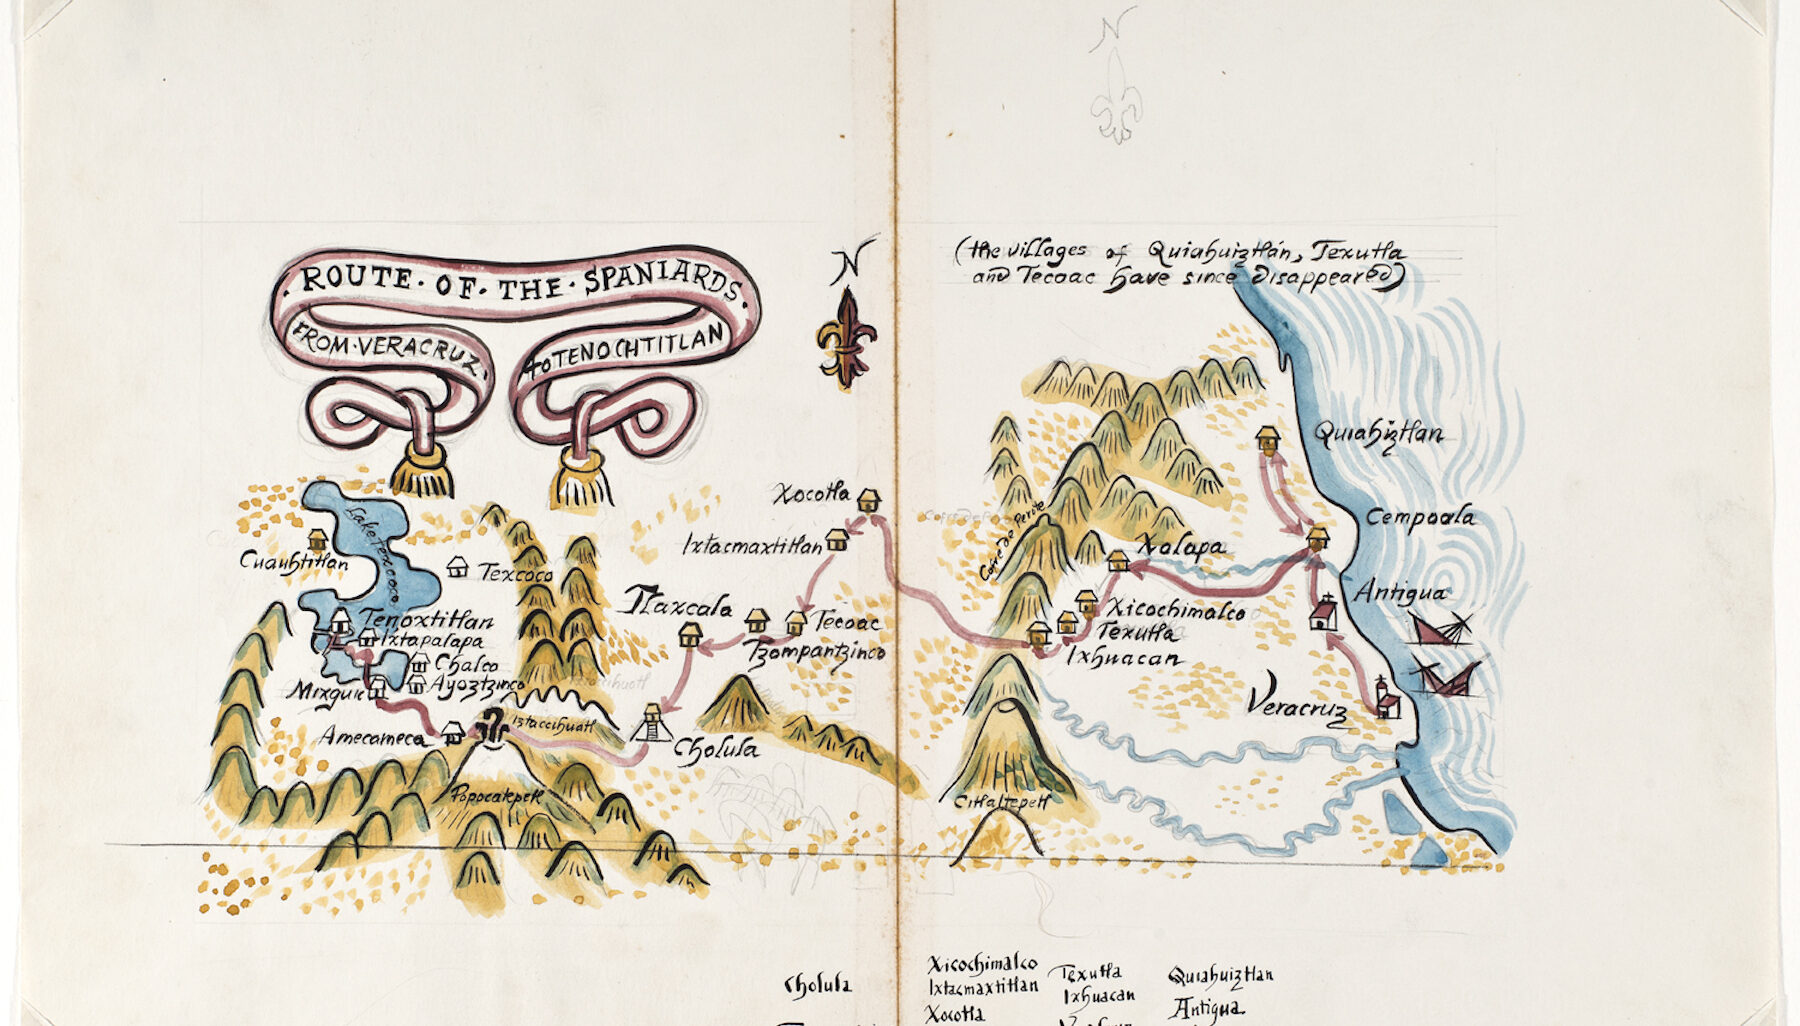 N
ROUTE · OF · THE · SPANIARDS ·
FROM · VERACRUZ ·
to TENOCHTITLAN
N
(the villages of Quiahuiztlán, Texutla
and Tecoac have since disappeared)
Quiahiztlan
Cempoala
Antigua
Veracruz
Xalapa
Xicochimalco
Texutla
Ixhuacan
Cofre de Perote
Citlaltepetl
Xocotla
Ixtacmaxtitlan
Tecoac
Tzompantzinco
Tlaxcala
Cholula
Iztaccihuatl
Popocatepetl
Amecameca
Lake Texcoco
Cuauhtitlan
Texcoco
Tenoxtitlan
Ixtapalapa
Chalco
Ayoztzinco
Mixquic
Cholula
Xicochimalco
Ixtacmaxtitlan
Xocotla
Texutla
Ixhuacan
Quiahuiztlan
Antigua